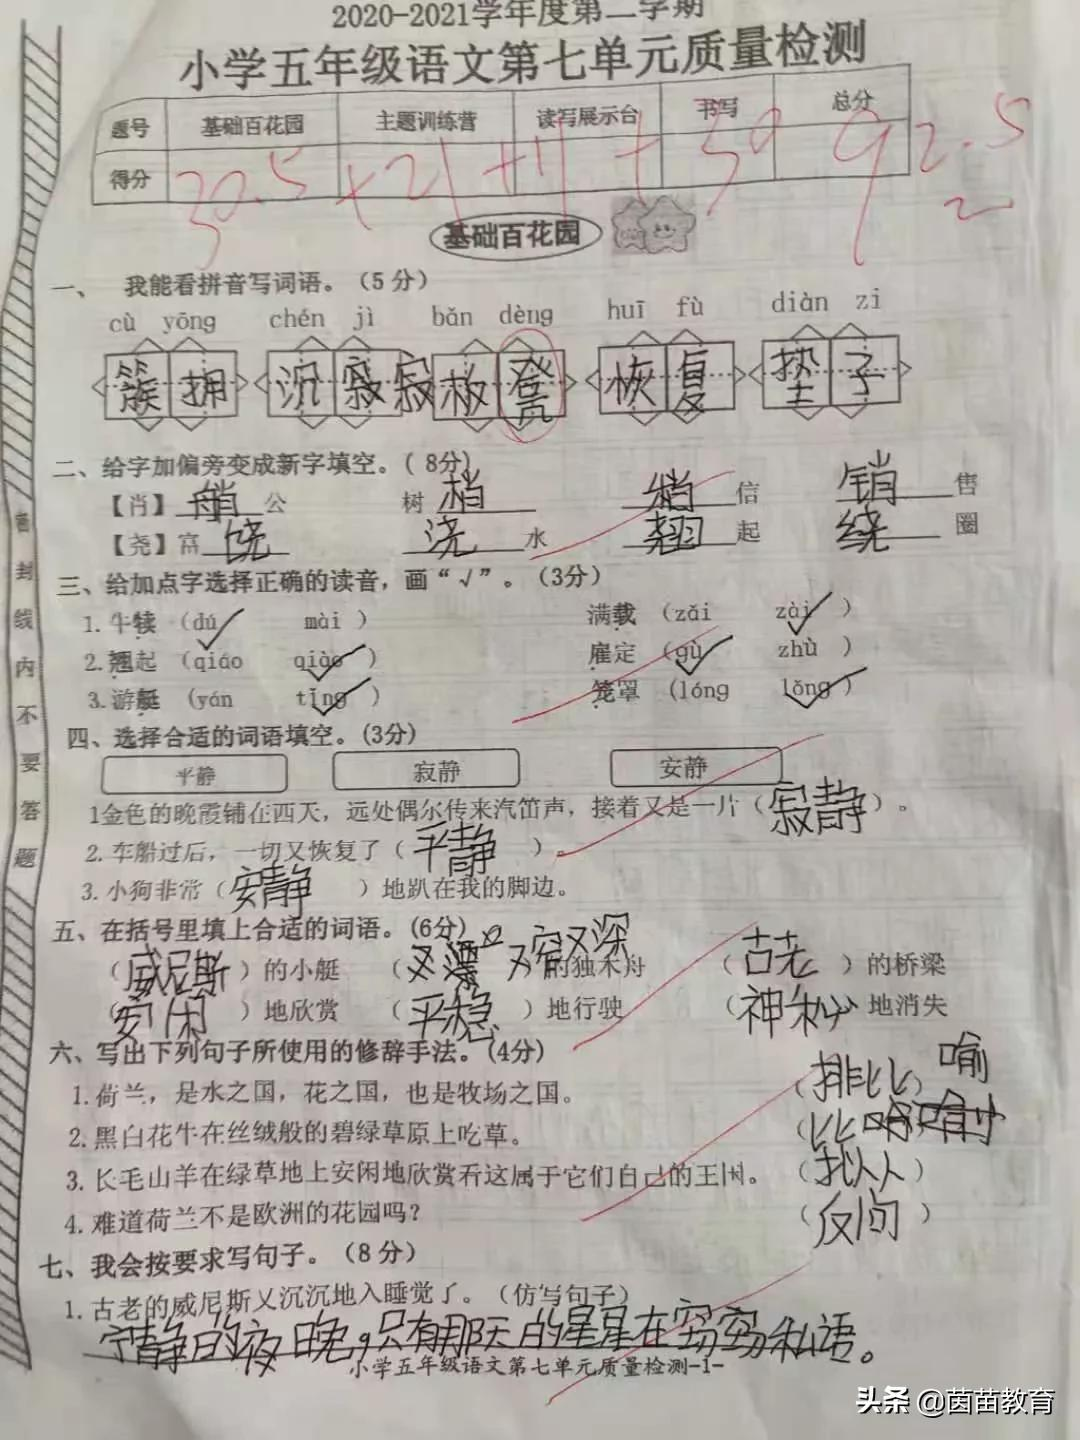 2020-2021学年度第二学期
小学五年级语文第七单元质量检测
题号 基础百花园 主题训练营 读写展示台 书写 总分
得分 30.5 + 21 + 41 + 92.5
基础百花园
一、 我能看拼音写词语。（5分）
cù yōng chén jì bǎn dèng huī fù diàn zi
簇拥 沉寂寂 板凳 恢复 垫子
二、给字加偏旁变成新字填空。（8分）
【肖】艄公 树梢 信 销售
【尧】富饶 浇水 翘起 绕圈
三、给加点字选择正确的读音，画“√”。（3分）
1.牛犊（dú√ mài） 满载（zǎi zài√）
2.翘起（qiáo qiào√） 雇定（gù√ zhù）
3.游艇（yán tǐng√） 笼罩（lóng lǒng√）
四、选择合适的词语填空。（3分）
平静 寂静 安静
1金色的晚霞铺在西天，远处偶尔传来汽笛声，接着又是一片（寂静）。
2.车船过后，一切又恢复了（平静）。
3.小狗非常（安静）地趴在我的脚边。
五、在括号里填上合适的词语。（6分）
（威尼斯）的小艇 （又窄又深）的独木舟 （古老）的桥梁
（安闲）地欣赏 （平稳）地行驶 （神秘）地消失
六、写出下列句子所使用的修辞手法。（4分）
1.荷兰，是水之国，花之国，也是牧场之国。（排比）
2.黑白花牛在丝绒般的碧绿草原上吃草。（比喻）
3.长毛山羊在绿草地上安闲地欣赏着这属于它们自己的王国。（拟人）
4.难道荷兰不是欧洲的花园吗？（反问）
七、我会按要求写句子。（8分）
1.古老的威尼斯又沉沉地入睡觉了。（仿写句子）
宁静的夜晚，只有那天的星星在窃窃私语。
小学五年级语文第七单元质量检测-1-
密封线内不要答题
头条 @茵苗教育